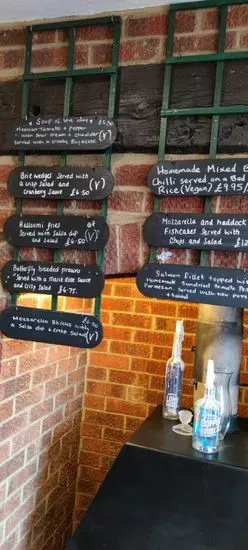 * Soup of the day * £5.50
Mexican Tomato + Pepper
with Sour cream + cheddar (V)
Served with a crusty Baguette
Brie wedges Served with
a crisp Salad and
Cranberry Sauce £6.50 (V)
Halloumi fries
Served with Salsa dip
and Salad £6.50 (V)
Butterfly breaded prawns
Served with a
and Crisp Salad £6.75.
Mozzarella Sticks with £6.50
a Salsa dip + crisp Salad (V)
Homemade Mixed B
Chilli served on a Bed
Rice (Vegan) £9.95
Mozzarella and haddock
Fishcakes Served with
Chips and Salad £12
Salmon Fillet topped with
Homemade Sundried tomato
Parmesan. Served with new
+ Salad